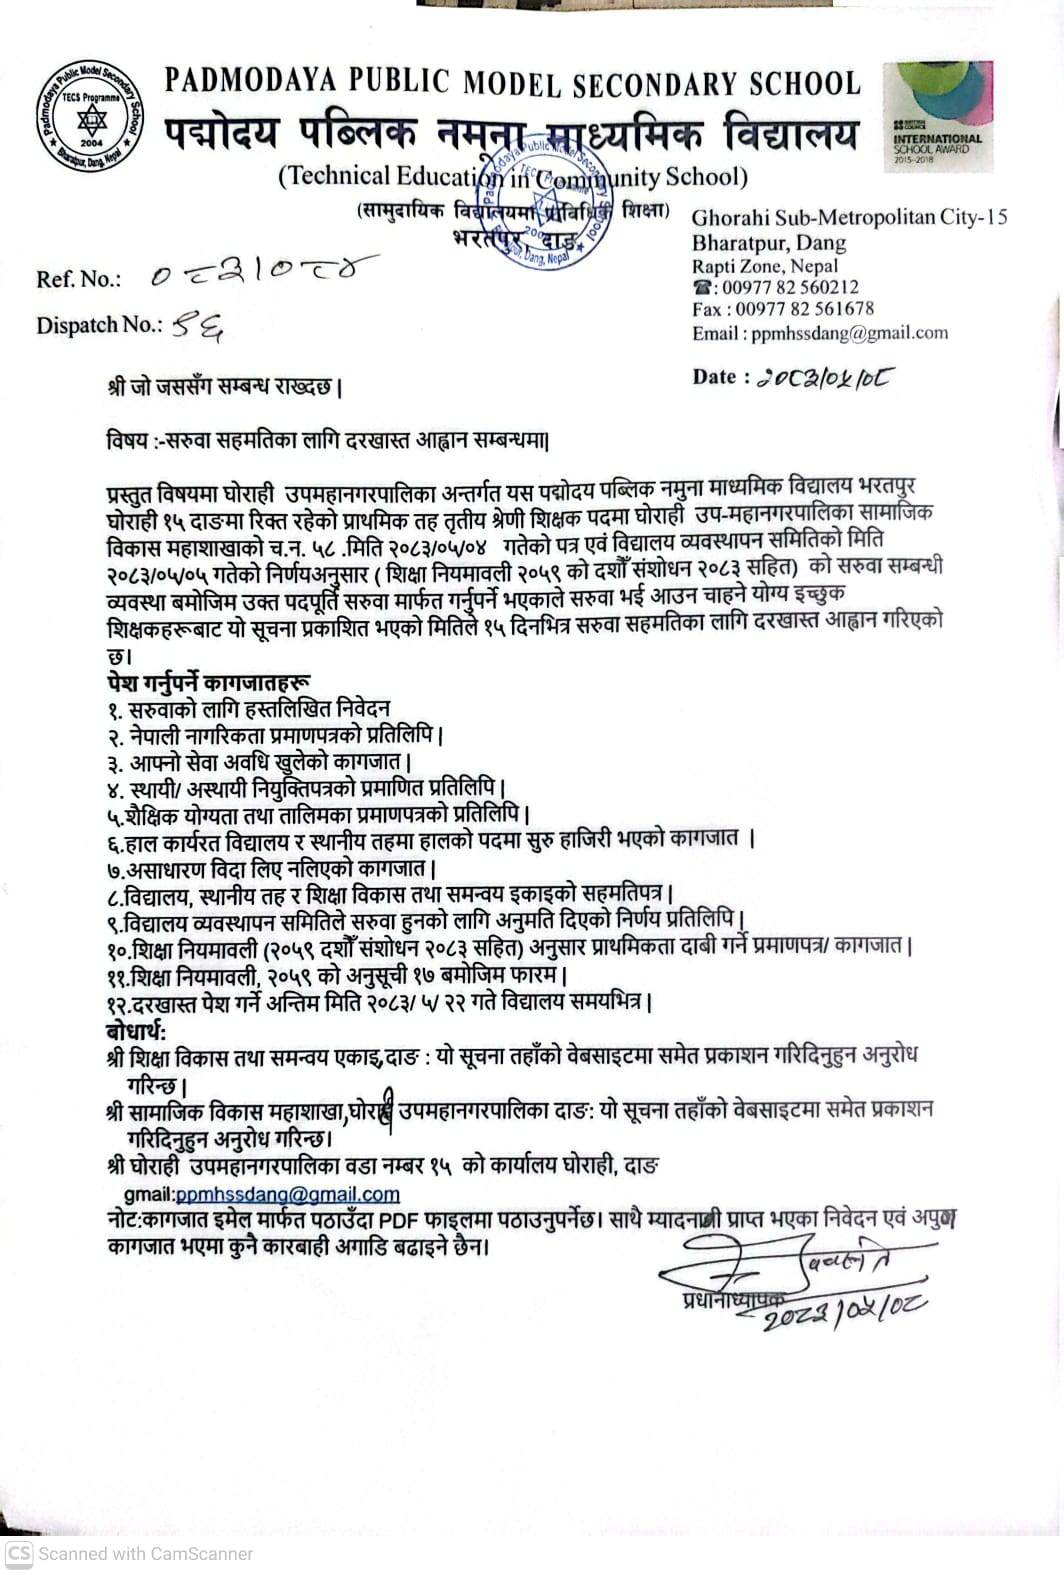 PADMODAYA PUBLIC MODEL SECONDARY SCHOOL
पद्मोदय पब्लिक नमूना माध्यमिक विद्यालय
(Technical Education in Community School)
(सामुदायिक विद्यालयमा प्राविधिक शिक्षा)
भरतपुर, दाङ
Padmodaya Public Model Secondary School
TECS Programme
2004
Bharatpur, Dang, Nepal
BRITISH COUNCIL
INTERNATIONAL
SCHOOL AWARD
2015-2018
Ghorahi Sub-Metropolitan City-15
Bharatpur, Dang
Rapti Zone, Nepal
☎: 00977 82 560212
Fax : 00977 82 561678
Email : ppmhssdang@gmail.com
Ref. No.: ०८३।०८४
Dispatch No.: १६
Date : २०८३/०५/०८
श्री जो जससँग सम्बन्ध राख्दछ|
विषय :-सरुवा सहमतिका लागि दरखास्त आह्वान सम्बन्धमा|
प्रस्तुत विषयमा घोराही उपमहानगरपालिका अन्तर्गत यस पद्मोदय पब्लिक नमुना माध्यमिक विद्यालय भरतपुर
घोराही १५ दाङमा रिक्त रहेको प्राथमिक तह तृतीय श्रेणी शिक्षक पदमा घोराही उप-महानगरपालिका सामाजिक
विकास महाशाखाको च.न. ५८ .मिति २०८३/०५/०४ गतेको पत्र एवं विद्यालय व्यवस्थापन समितिको मिति
२०८३/०५/०५ गतेको निर्णयअनुसार ( शिक्षा नियमावली २०५९ को दशौँ संशोधन २०८३ सहित) को सरुवा सम्बन्धी
व्यवस्था बमोजिम उक्त पदपूर्ति सरुवा मार्फत गर्नुपर्ने भएकाले सरुवा भई आउन चाहने योग्य इच्छुक
शिक्षकहरूबाट यो सूचना प्रकाशित भएको मितिले १५ दिनभित्र सरुवा सहमतिका लागि दरखास्त आह्वान गरिएको
छ।
पेश गर्नुपर्ने कागजातहरू
१. सरुवाको लागि हस्तलिखित निवेदन
२. नेपाली नागरिकता प्रमाणपत्रको प्रतिलिपि|
३. आफ्नो सेवा अवधि खुलेको कागजात|
४. स्थायी/ अस्थायी नियुक्तिपत्रको प्रमाणित प्रतिलिपि|
५.शैक्षिक योग्यता तथा तालिमका प्रमाणपत्रको प्रतिलिपि|
६.हाल कार्यरत विद्यालय र स्थानीय तहमा हालको पदमा सुरु हाजिरी भएको कागजात |
७.असाधारण विदा लिए नलिएको कागजात|
८.विद्यालय, स्थानीय तह र शिक्षा विकास तथा समन्वय इकाइको सहमतिपत्र|
९.विद्यालय व्यवस्थापन समितिले सरुवा हुनको लागि अनुमति दिएको निर्णय प्रतिलिपि|
१०.शिक्षा नियमावली (२०५९ दशौँ संशोधन २०८३ सहित) अनुसार प्राथमिकता दाबी गर्ने प्रमाणपत्र/ कागजात|
११.शिक्षा नियमावली, २०५९ को अनुसूची १७ बमोजिम फारम|
१२.दरखास्त पेश गर्ने अन्तिम मिति २०८३/ ५/ २२ गते विद्यालय समयभित्र|
बोधार्थ:
श्री शिक्षा विकास तथा समन्वय एकाइ,दाङ : यो सूचना तहाँको वेबसाइटमा समेत प्रकाशन गरिदिनुहुन अनुरोध
गरिन्छ|
श्री सामाजिक विकास महाशाखा,घोराही उपमहानगरपालिका दाङ: यो सूचना तहाँको वेबसाइटमा समेत प्रकाशन
गरिदिनुहुन अनुरोध गरिन्छ।
श्री घोराही उपमहानगरपालिका वडा नम्बर १५ को कार्यालय घोराही, दाङ
gmail:ppmhssdang@gmail.com
नोट:कागजात इमेल मार्फत पठाउँदा PDF फाइलमा पठाउनुपर्नेछ। साथै म्यादनाघी प्राप्त भएका निवेदन एवं अपुरा
कागजात भएमा कुनै कारबाही अगाडि बढाइने छैन।
प्रधानाध्यापक
२०८३/०५/०८
CS Scanned with CamScanner